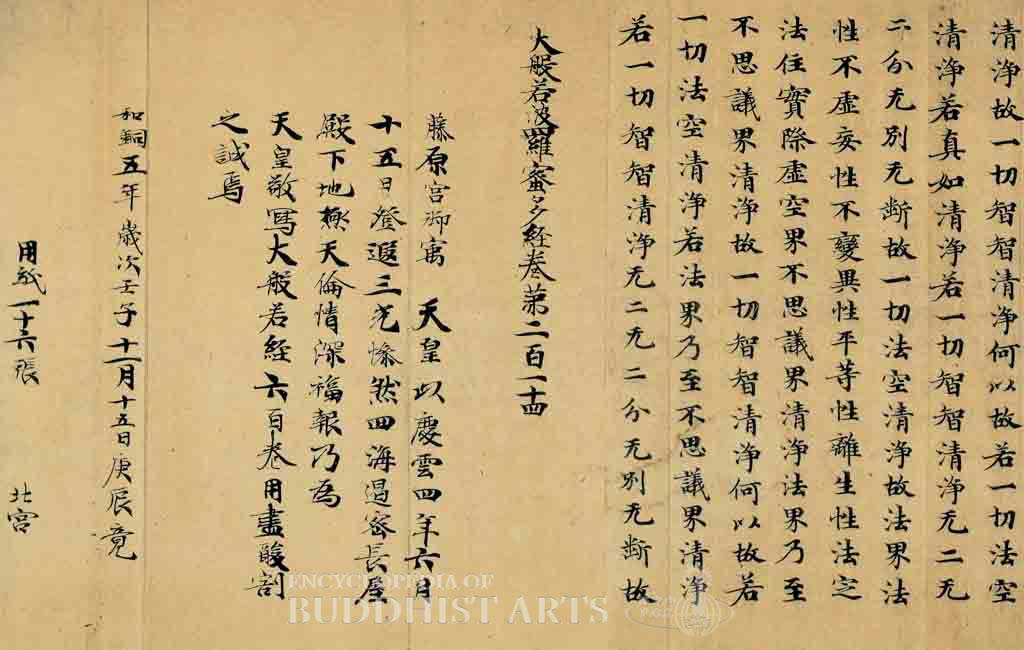 清浄故一切智智清浄何以故若一切法空
清浄若真如清浄若一切智智清浄无二无
二分无別无断故一切法空清浄故法界法
性不虛妄性不變異性平等性離生性法定
法住實際虛空界不思議界清浄法界乃至
不思議界清浄故一切智智清浄何以故若
一切法空清浄若法界乃至不思議界清浄
若一切智智清浄无二无二分无別无断故
大般若波羅蜜多経巻第二百一十四
藤原宮御寓 天皇以慶雲四年六月
十五日登遐三光惨然四海遏密長屋
殿下地極天倫情深福報乃為
天皇敬寫大般若経六百巻用盡酸割
之誠焉
和銅五年歳次壬子十一月十五日庚辰竟
用紙一十六張 北宮
ENCYCLOPEDIA OF
BUDDHIST ARTS